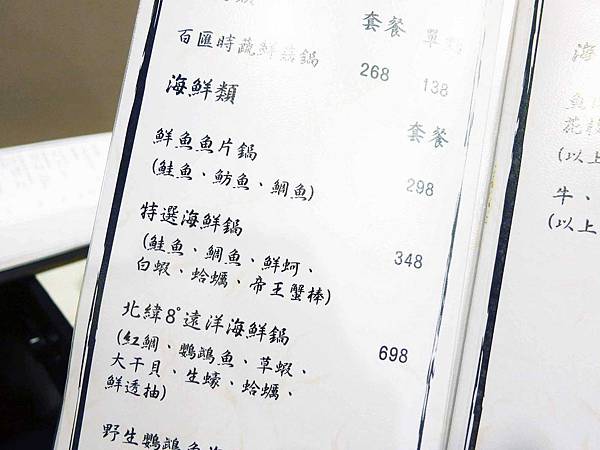 套餐 單
百匯時蔬鮮菇鍋 268 138
海鮮類 套餐
鮮魚魚片鍋 298
(鮭魚、魴魚、鯛魚)
特選海鮮鍋 348
(鮭魚、鯛魚、鮮蚵、
白蝦、蛤蠣、帝王蟹棒)
北緯8°遠洋海鮮鍋 698
(紅鯛、鸚鵡魚、草蝦、
大干貝、生蠔、蛤蠣、
鮮透抽)
野生鸚鵡魚海
海
魚
花
(以上
牛、
(以上